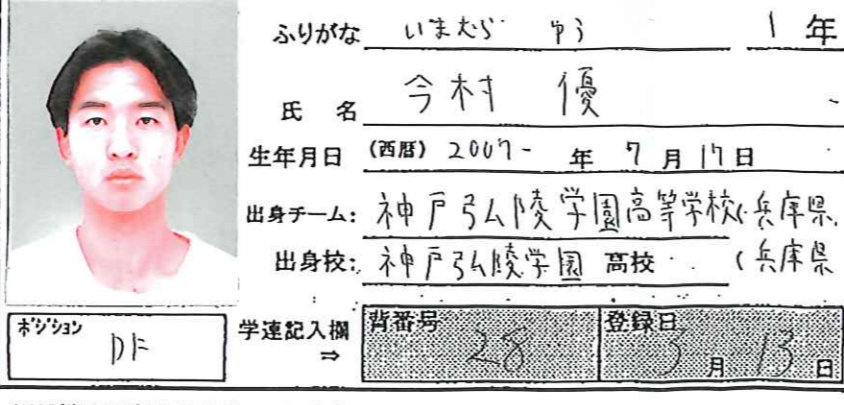 ふりがな いまむら ゆう 1 年
氏 名 今村 優
生年月日 (西暦) 2007- 年 7 月 17 日
出身チーム: 神戸弘陵学園高等学校(兵庫県
出身校: 神戸弘陵学園 高校 (兵庫県
ポジション DF
学連記入欄 ⇒
背番号 28
登録日 5 月 13 日